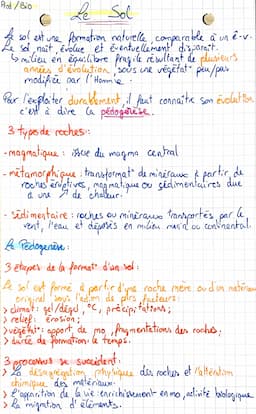 Prod / Bio
Le Sol
Le sol est une formation naturelle, comparable à un ê-v.
Le sol naît, évolue et éventuellement disparaît.
↳ milieu en équilibre fragile résultant de plusieurs
années d'évolution, sous une végétat° peu/pas
modifiée par l'Homme.
Pour l'exploiter durablement, il faut connaître son évolution
c'est à dire la pédogénèse.
3 types de roches :
- magmatique : issue du magma central
- métamorphique : transformat° de minéraux à partir de
roches éruptives, magmatique ou sédimentaires due
à une ↗ de chaleur.
- sédimentaire : roches ou minéraux transportés par le
vent, l'eau et déposés en milieu marin ou continental.
La Pédogénèse :
3 étapes de la format° d'un sol :
Le sol est formé à partir d'une roche mère ou d'un matériau
originel sous l'act° de plrs facteurs :
> climat : gel/dégel, °C, précipitations ;
> relief : érosion ;
> végétat° : apport de mo, fragmentations des roches ;
> durée de formation : le temps.
3 processus se succèdent :
> La désagrégation physique des roches et l'altération
chimique des matériaux.
> L'apparition de la vie : enrichissement en mo, activité biologique
> La migration d'éléments.